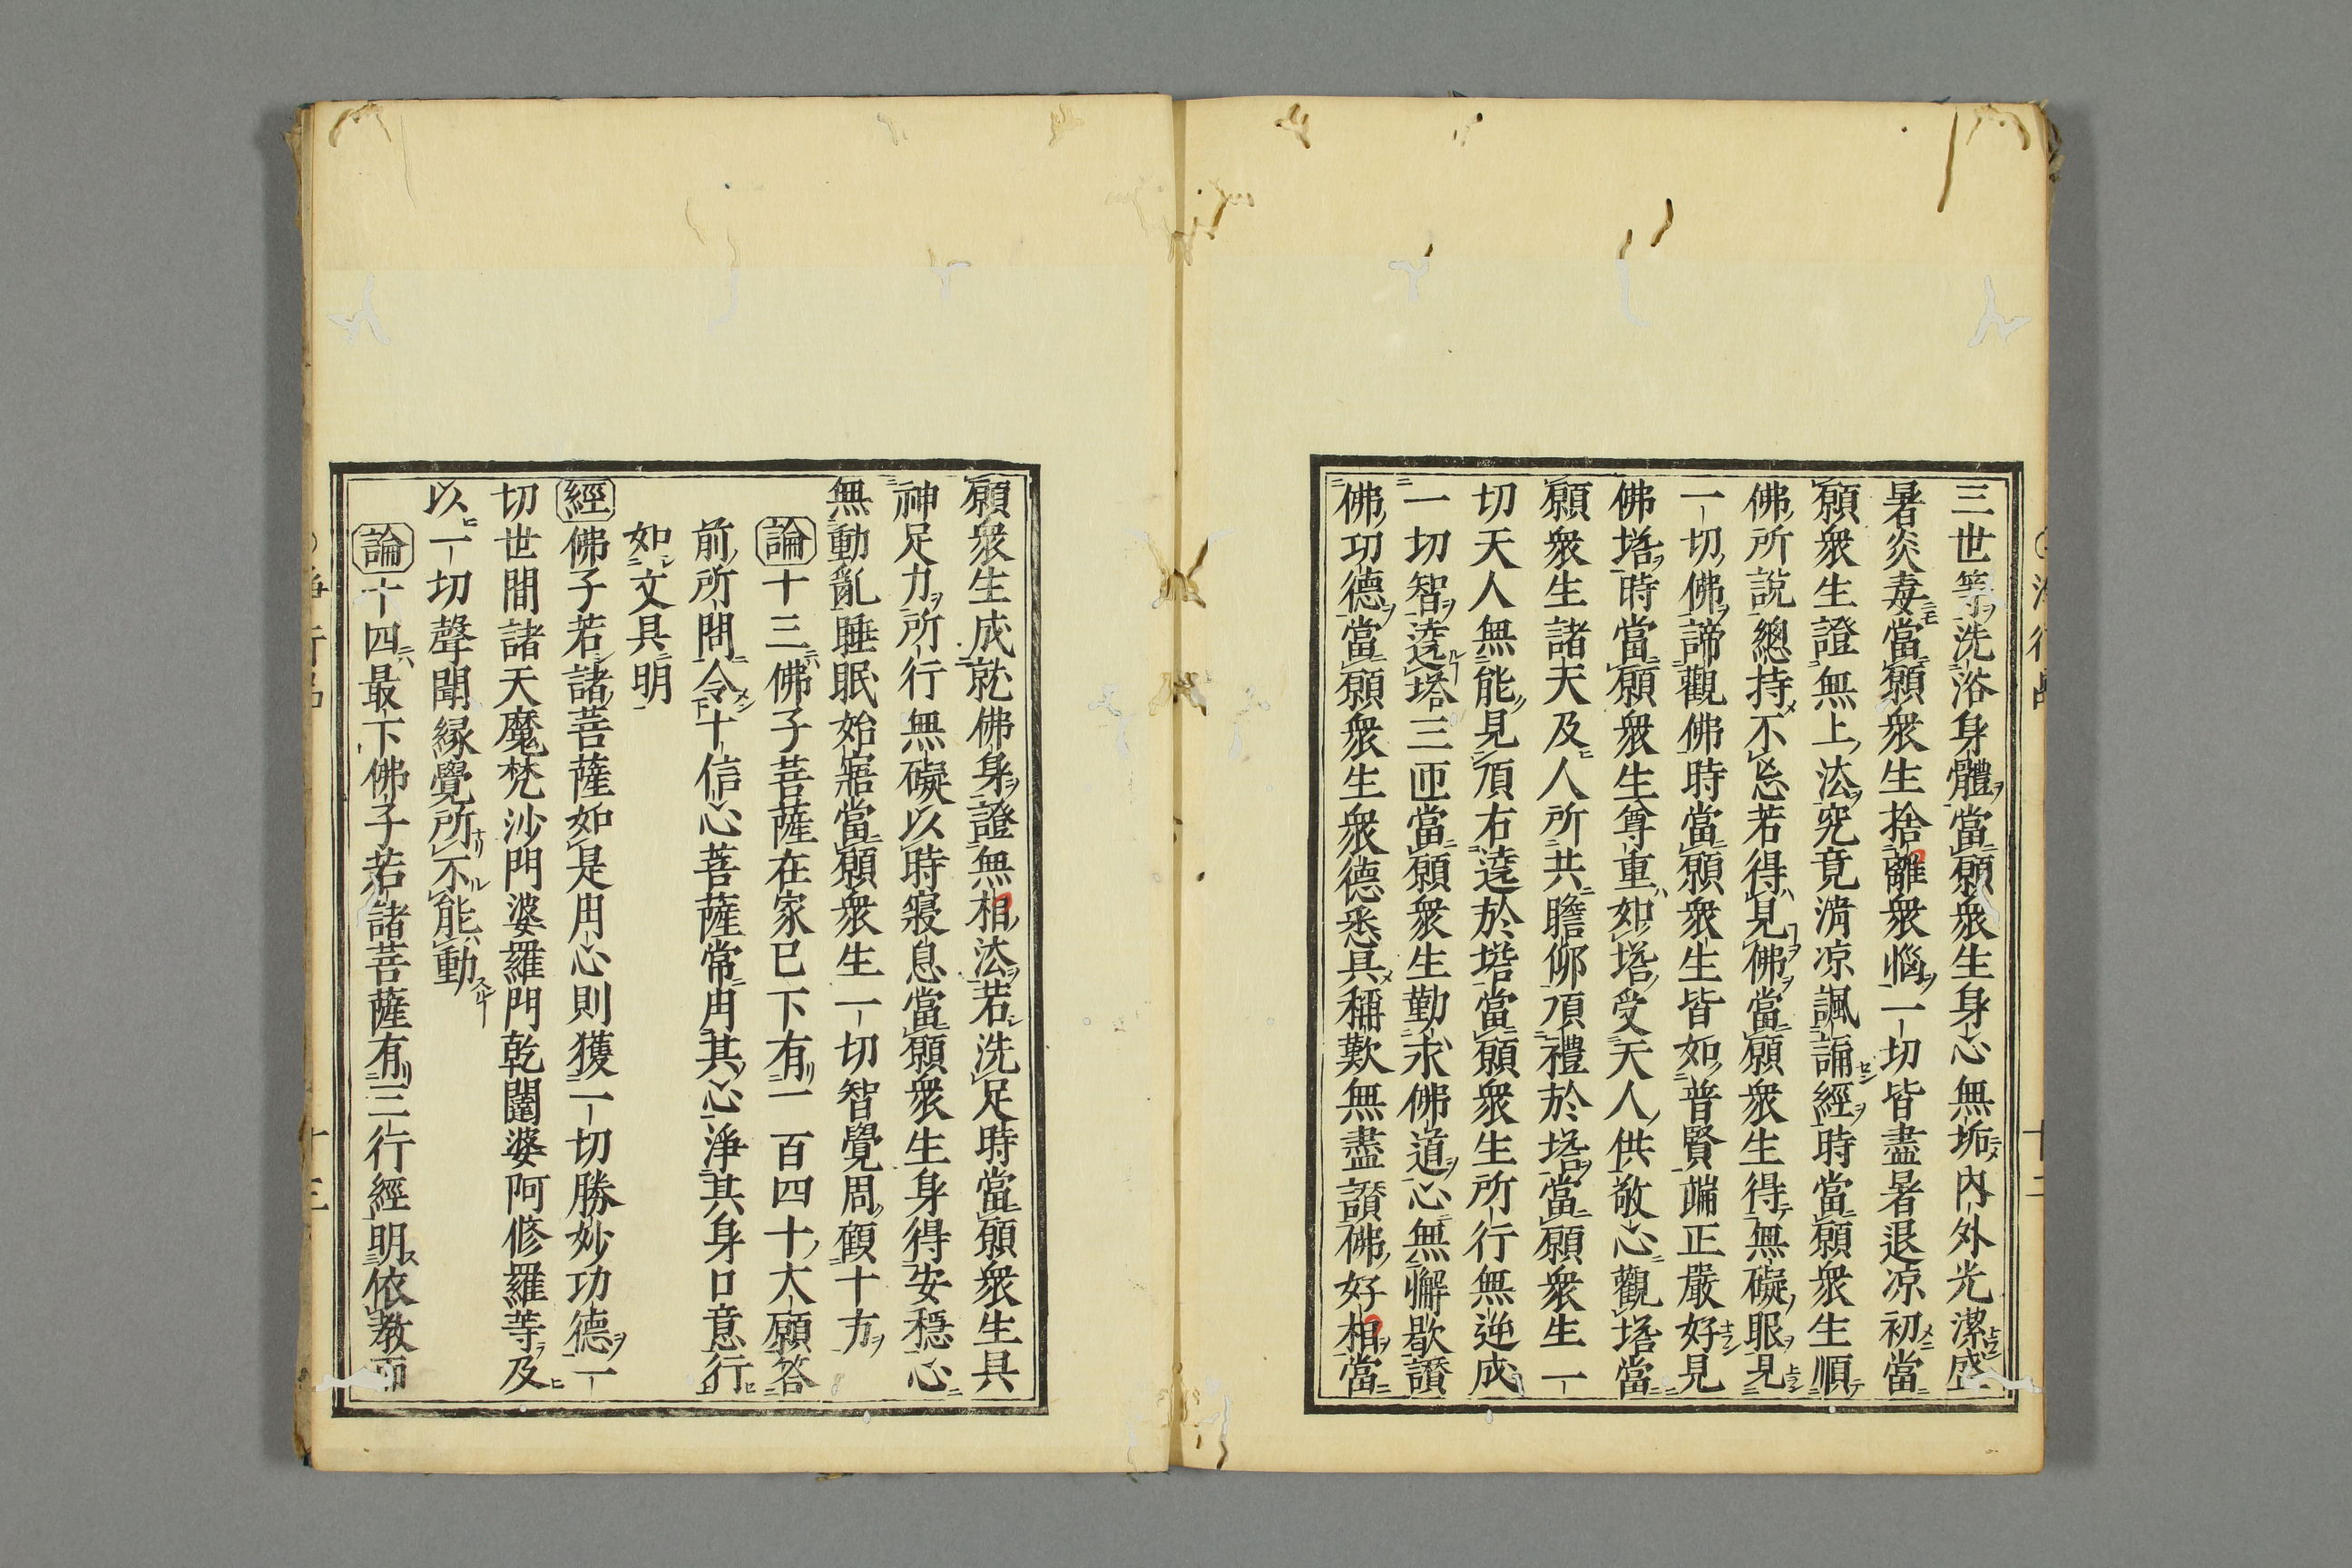 三世等洗浴身體當願衆生身心無垢內外光潔盛
暑炎毒當願衆生捨離衆惱一切皆盡暑退凉初當
願衆生證無上法究竟淸凉諷誦經時當願衆生順
佛所說總持不忘若得見佛當願衆生得無礙眼見
一切佛諦觀佛時當願衆生皆如普賢端正嚴好見
佛塔時當願衆生尊重如塔受天人供敬心觀塔當
願衆生諸天及人所共瞻仰頂禮於塔當願衆生一
切天人無能見頂右遶於塔當願衆生所行無逆成
一切智遶塔三匝當願衆生勤求佛道心無懈歇讃
佛功德當願衆生衆德悉具稱歎無盡讃佛好相當
願衆生成就佛身證無相法若洗足時當願衆生具
神足力所行無礙以時寢息當願衆生身得安穩心
無動亂睡眠始寤當願衆生一切智覺周顧十方
論十三佛子菩薩在家已下有一百四十大願答
前所問令十信心菩薩常用其心淨其身口意行
如文具明
經佛子若諸菩薩如是用心則獲一切勝妙功德一
切世間諸天魔梵沙門婆羅門乾闥婆阿修羅等及
以一切聲聞緣覺所不能動
論十四最下佛子若諸菩薩有三行經明依教而